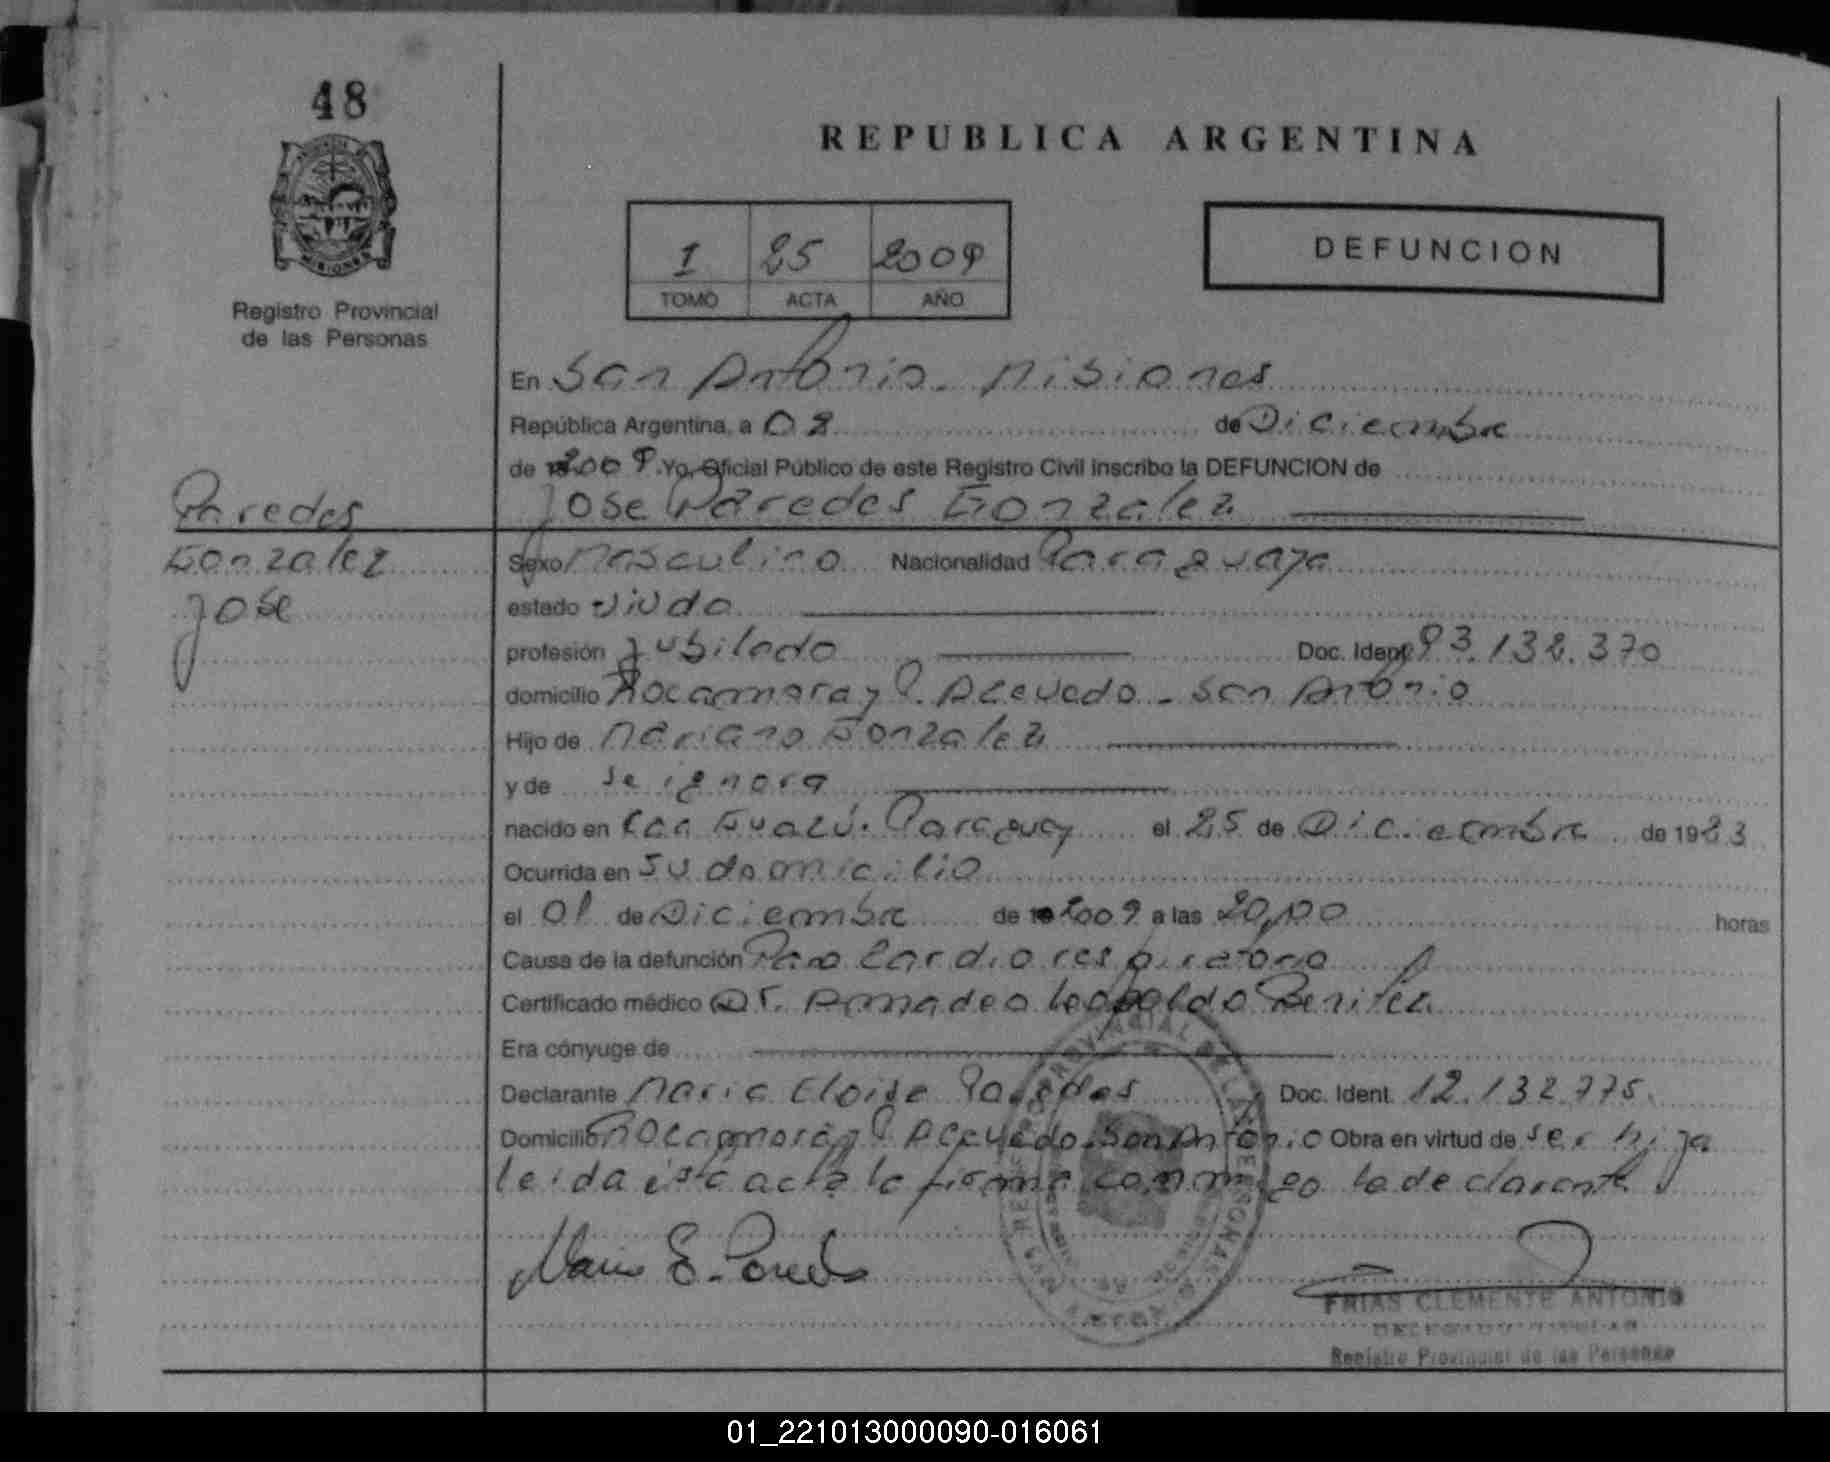 48
REPUBLICA ARGENTINA
MISIONES
Registro Provincial
de las Personas
1 25 2009
TOMO ACTA AÑO
DEFUNCION
En San Antonio. Misiones
República Argentina, a 02 de Diciembre
de 2009. Yo, Oficial Público de este Registro Civil inscribo la DEFUNCION de
Jose Paredes Gonzalez
Paredes
Gonzalez
Jose
Sexo Masculino Nacionalidad Paraguaya
estado viudo
profesión Jubilado Doc. Ident. 93.132.370
domicilio Rocamora y P. Acevedo - San Antonio
Hijo de Mariano Gonzalez
y de se ignora
nacido en Caa Guazú. Paraguay el 25 de Diciembre de 1923
Ocurrida en su domicilio
el 01 de Diciembre de 2009 a las 20,00 horas
Causa de la defunción Paro Cardio respiratorio
Certificado médico Dr. Amadeo Leopoldo Benitez
Era cónyuge de
Declarante Maria Eloise Paredes Doc. Ident. 12.132.775.
Domicilio Rocamora y P. Acevedo. San Antonio Obra en virtud de ser hija
leida esta acta la firma conmigo la declarante
Maria E. Paredes
FRIAS CLEMENTE ANTONIO
Registro Provincial de las Personas
01_221013000090-016061